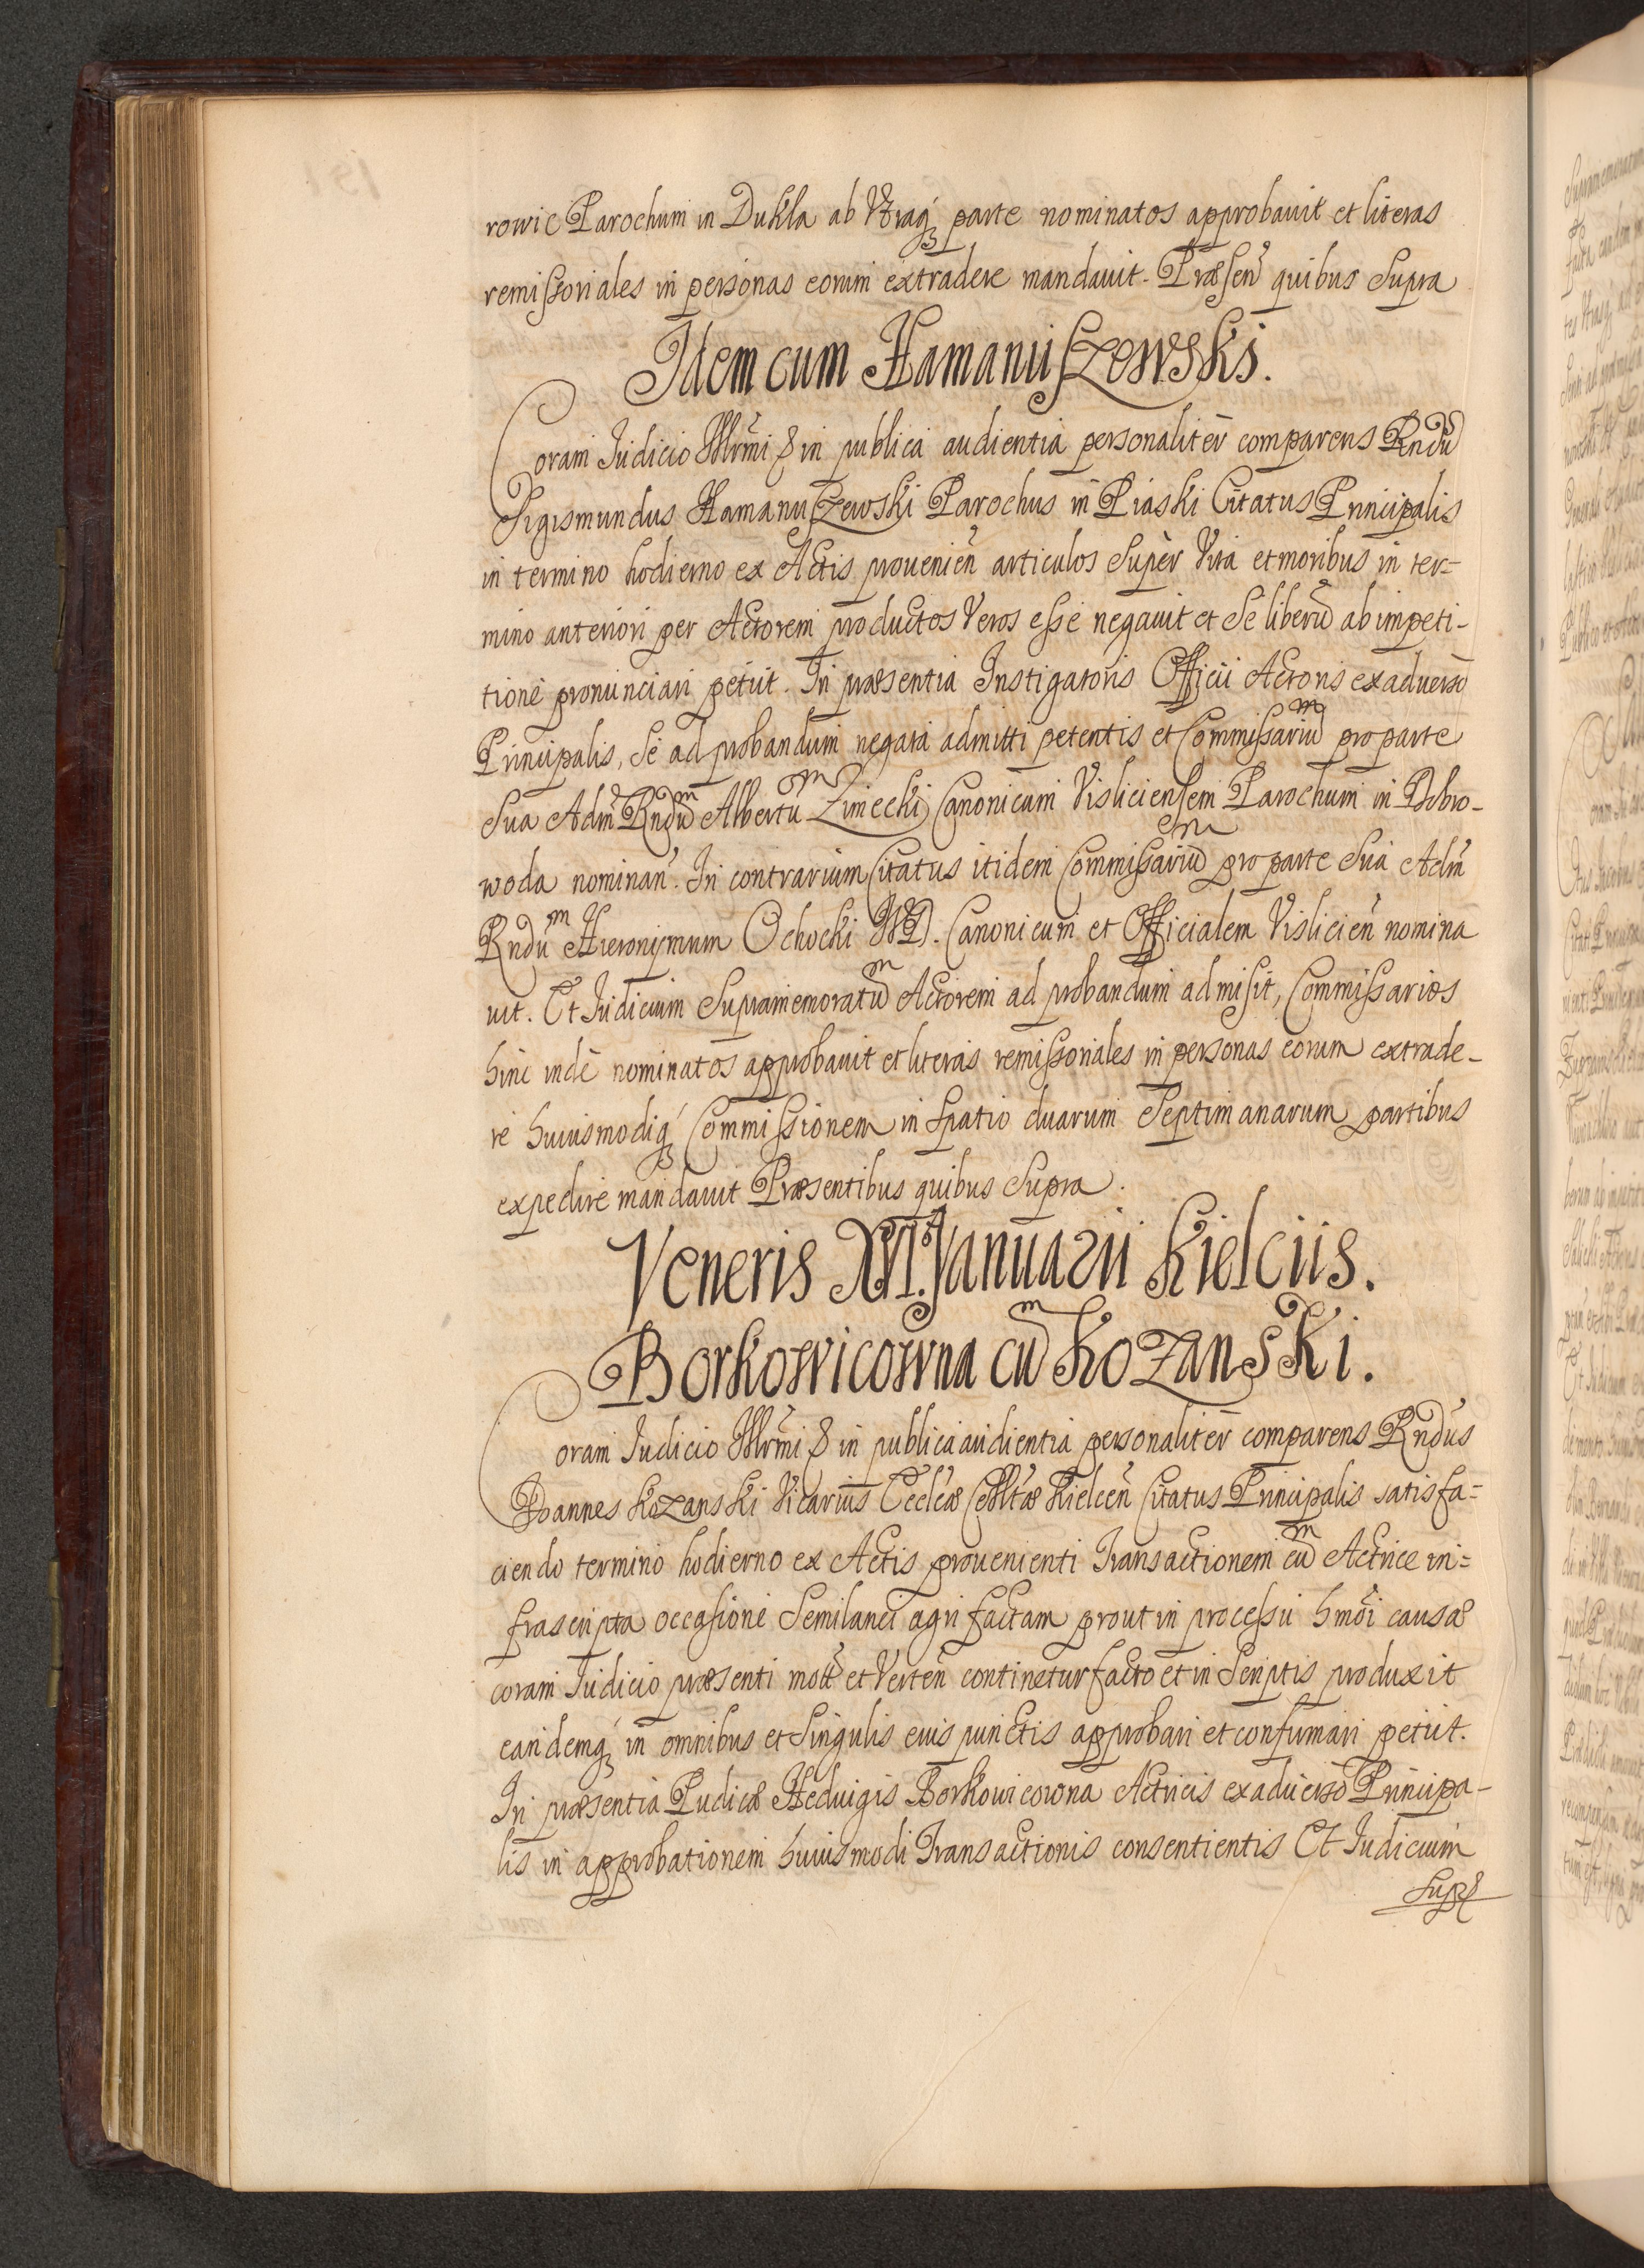 rowic Parochum in Dukla ab Utraq; parte nominatos approbavit et literas
remissoriales in personas eorum extradere mandavit. Præsen quibus Supra
Idem cum Hamanuszewski.
Coram Judicio Illrmi & in publica audientia personaliter comparens Rndus
Sigismundus Hamanuszewski Parochus in Piaski Citatus Principalis
in termino hodierno ex Actis provenien articulos Super Vita et moribus in ter=
mino anteriori per Actorem productos Veros esse negavit et Se liberũ ab impeti-
tione pronunciari petiit. In præsentia Instigatoris Officii Actoris ex adverso
Principalis, Se ad probandum negata admitti petentis et Commissariũm pro parte
Sua Adm Rndũm Albertũm Zimecki Canonicum Visliciensem Parochum in Dobro-
woda nominan. In contrarium Citatus itidem Commissariũm pro parte Sua Adm
Rndũm Hieronymum Ochocki Canonicum et Officialem Vislicien nomina
vit. Et Judicium Supramemoratũm Actorem ad probandum admisit, Commissarios
hinc inde nominatos approbavit et literas remissoriales in personas eorum extrade-
re huiusmodiq; Commissionem in Spatio duarum Septimanarum partibus
expedire mandavit Præsentibus quibus Supra.
Veneris XVI. Januarii Kielciis.
Borkowicowna cũm Kozanski.
Coram Judicio Illrmi & in publica audientia personaliter comparens Rndus
Joannes Kozanski Vicarius Eccleæ Colltæ Kielcen Citatus Principalis satisfa=
ciendo termino hodierno ex Actis provenienti Transactionem cũm Actrice in=
frascripta occasione Semilanei agri factam prout in processu hmoi causæ
coram Judicio præsenti motæ et Verten continetur facto et in Scriptis produxit
eandemq; in omnibus et Singulis eius punctis approbari et confirmari petiit.
In præsentia Pudicæ Hedvigis Borkowicowna Actricis ex adverso Principa-
lis in approbationem huiusmodi Transactionis consentientis Et Judicium